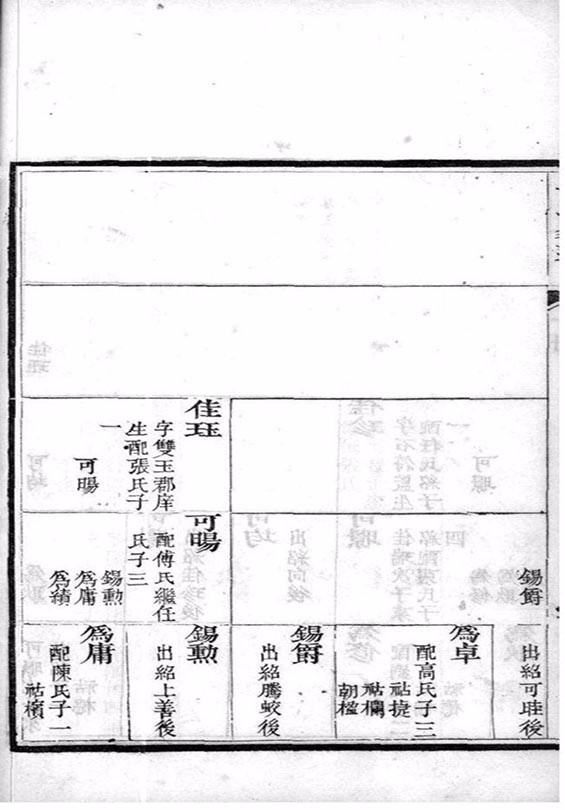 佳珏
字雙玉郡庠
生配張氏子
一
可暘
錫爵
可暘
配傅氏繼任
氏子三
錫勲
爲庸
爲績
出紹可琟後
爲卓
配高氏子三
祜捷
祜欄
朝楹
錫爵
出紹騰蛟後
錫勲
出紹上善後
爲庸
配陳氏子一
祜檳